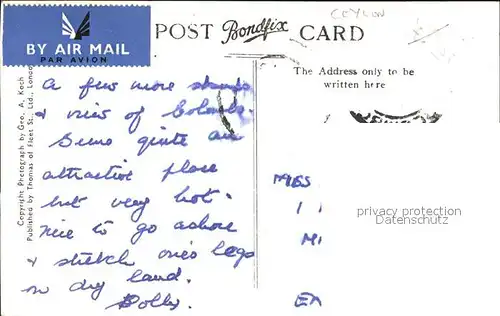 CEYLON
BY AIR MAIL
PAR AVION
POST Bondfix CARD
The Address only to be
written here
Copyright Photograph by Geo. A. Koch
Published by Thomas of Fleet St., Ltd., London
A few more stamps
& view of Colombo.
Seems quite an
attractive place
but very hot.
Nice to go ashore
& stretch one's legs
on dry land.
Dolly.
MISS
MI
privacy protection
Datenschutz